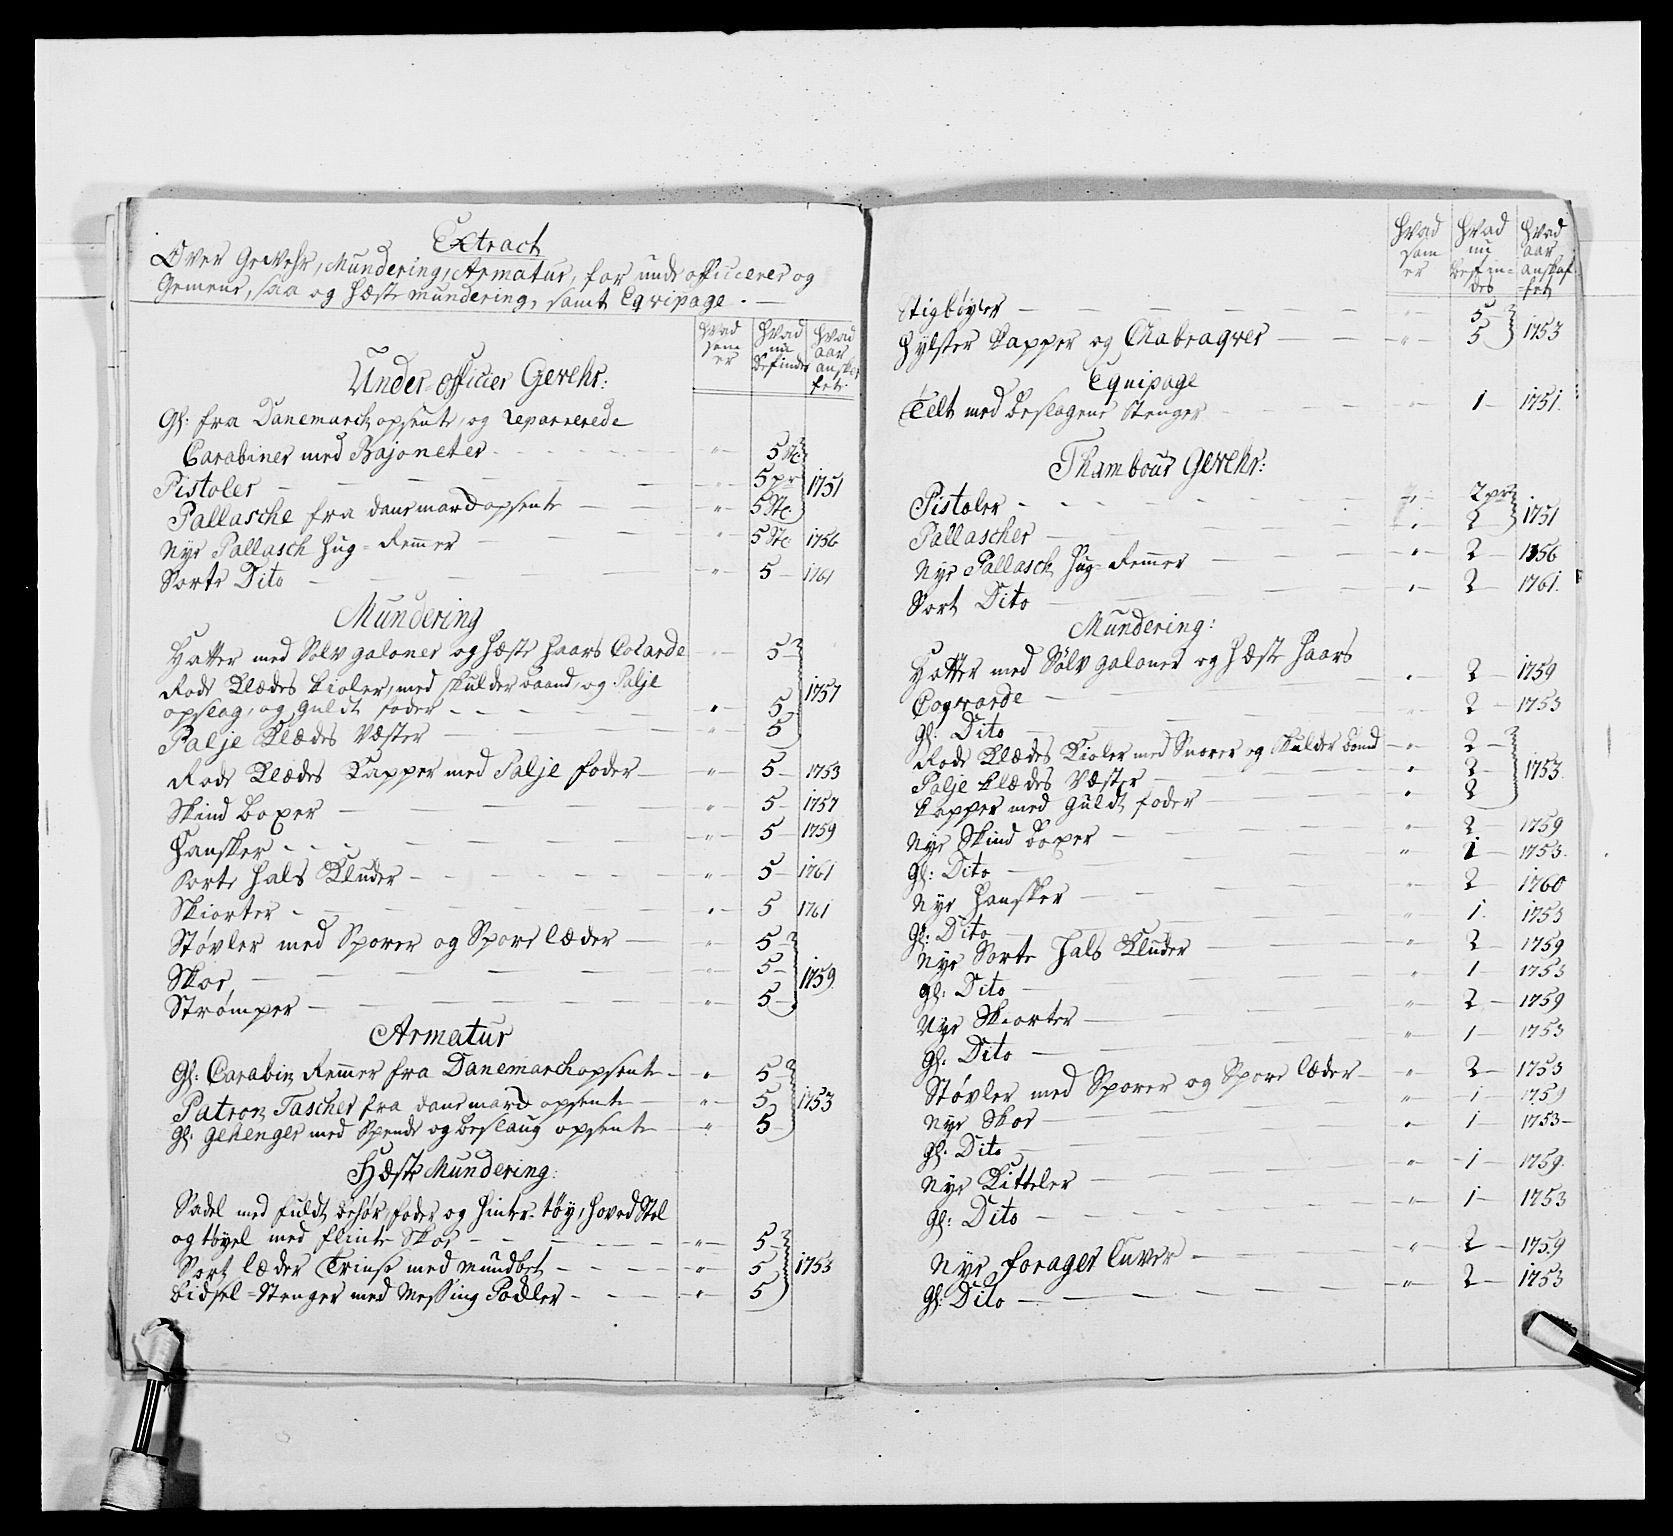 Extract
Over Gevehr, Mundering, Armatur, for under officierer og
Gemene, saa og Hæste mundering, samt Eqvipage. —
Hvad som er | Hvad nu befindes | Hvad aar anskaffet
Under-officier Gevehr:
Gl: fra Danemarck opsente, og reparerede
Carabiner med Bajoneter - - - " - 5 Stc
Pistoler — — " - 5 pr 1751
Pallasche fra danemarck opsente — — " - 5 Stc
Nye Pallasch Hug-Remmer — — " - 5 Stc 1756
Sorte Dito — — " - 5 - 1761
Mundering
Hatter med Sølv galoner og Hæste Haars Cocarde " - 5 -
Røde Klædes Kioler, med skulder baand, og Palje
opslag, og Guldt foder - - - " - 5 1757
Palje Klædes Vester — — " - 5
Røde Klædes Kapper med Palje foder — " - 5 - 1753
Skind boxer — — " - 5 - 1757
Hansker - - - — " - 5 - 1759
Sorte Hals Kluder - — " - 5 - 1761
Skiorter - — " - 5 1761
Støvler med Sporer og Spore læder — " - 5 -
Skoe, — — " - 5 - 1759.
Strømper — — " - 5 -
Armatur
Gl: Carabin Remmer fra Danemarck opsente - " - 5
Patron Tascher fra danemarck opsente — " - 5 1753
Gl: Gehenger med Spende og beslaug opsente — " - 5
Hæste Mundering:
Sadel med fuldt behør, foder og Hinter-tøy, Hoved Stol
og tøyel med flinte Skoe - - — " - 5
Sort læder Trinse med mundbet - - — " - 5 1753
Bidsel-Stenger med Messing Podler - - — " - 5
Hvad som er | Hvad nu befindes | Hvad aar anskaffet
Stigbøyler — — " - 5
Hylster Kapper og Chabraqver — — " - 5 1753
Equipage
Telt med beslagene Stenger — " - 1 - 1751.
Thambour Gevehr:
Pistoler - - — " - 2 pr
Pallascher — — " - 2 1751
Nye Pallasch Hug-Remmer — — " - 2 - 1756
Sort Dito — — " - 2 - 1761.
Mundering:
Hatter med Sølv galoner og Hæste Haars
Coqvarde — " - 2 - 1759
Gl: Dito — — " - 2 - 1753
Røde Klædes Kioler med Snorer og Skulder bond - " - 2 -
Palje Klædes Vester — — " - 2 - 1753.
Kapper med Guldt foder — " - 2
Nye Skind boxer — — " - 2 - 1759
Gl: Dito — — " - 1 - 1753.
Nye Hansker — — " - 2 - 1760
Gl: Dito — — " - 1. 1753
Nye Sorte Hals Kluder — — " - 2 - 1759
Gl: Dito — — " - 1 - 1753
Nye Skiorter — — " - 2 - 1759
Gl: Dito — — " - 1 - 1753
Støvler med Sporer og Spore læder — " - 2 - 1753
Nye Skoe — — " - 1 - 1759
Gl: Dito — — " - 1 - 1753 -
Nye Kitteler — — " - 1 - 1759.
Gl: Dito — — " - 1 - 1753
Nye forager luver — — " - 2 - 1759
Gl: Dito — — " - 2 - 1753